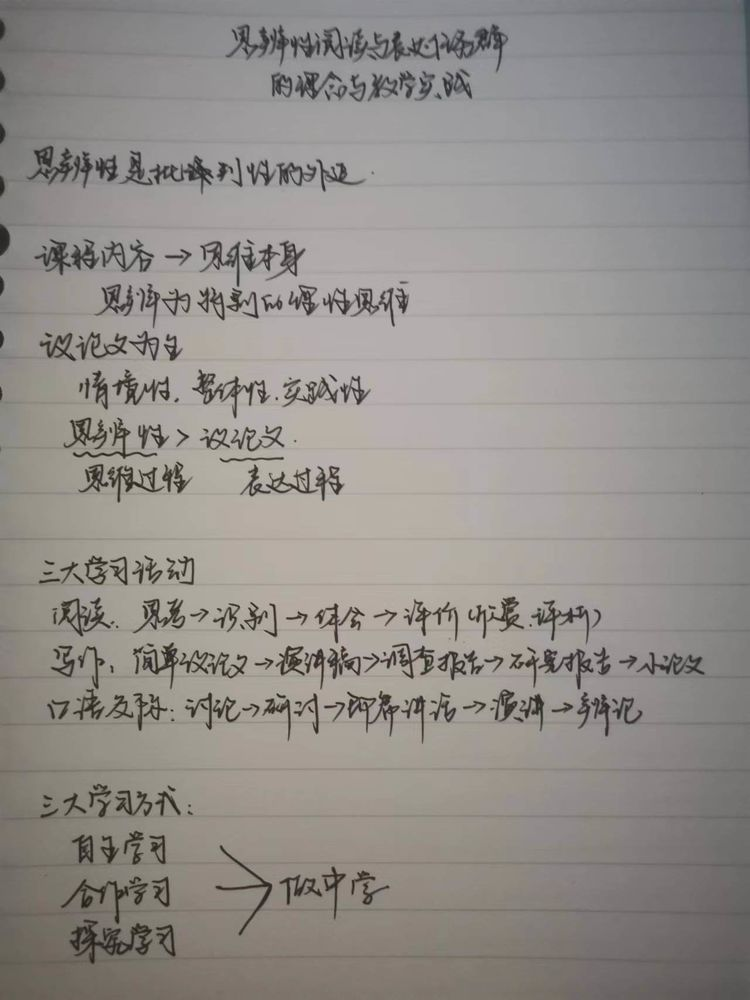 思辨性阅读与表达任务群
的理念与教学实践
思辨性是批判性的外延.
课程内容→思维本身
思辨为特别的理性思维
议论文为主
情境性.整体性.实践性
思辨性>议论文.
思维过程 表达过程
三大学习活动
阅读:思考→识别→体会→评价(欣赏.评析)
写作:简单议论文→演讲稿→调查报告→研究报告→小论文
口语交际:讨论→研讨→即席讲话→演讲→辩论
三大学习方式:
自主学习
合作学习
探究学习
做中学